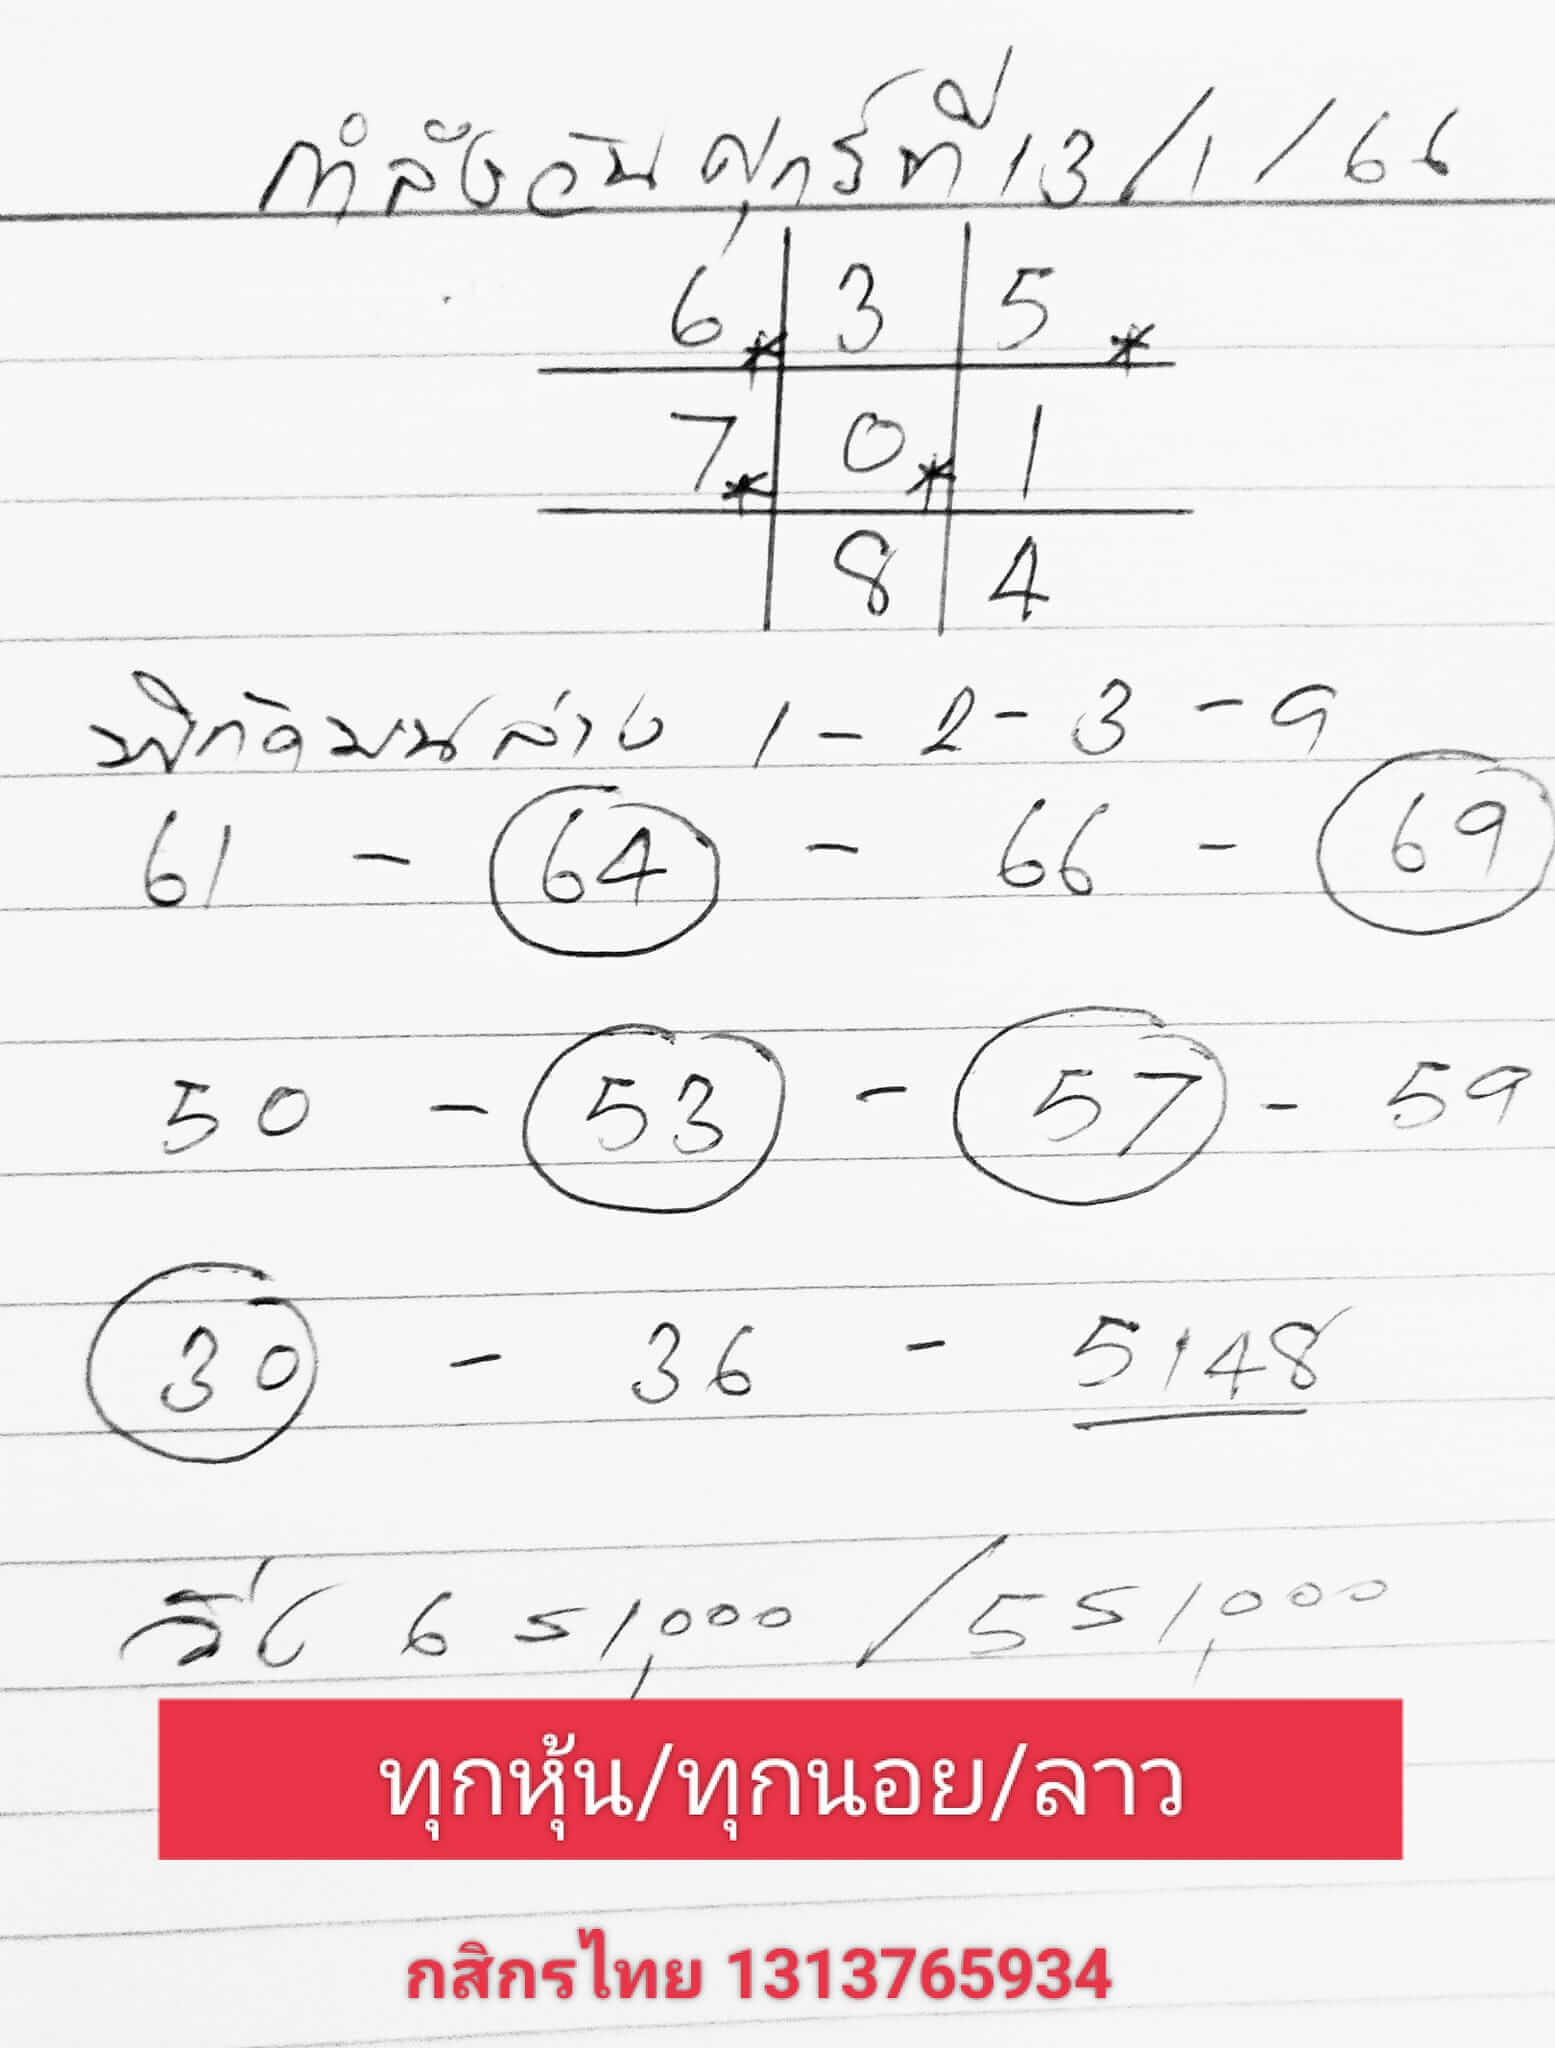 กำลังวันศุกร์ที่ 13/1/66
6* 3 5*
7* 0* 1
8 4
พิกัดบนล่าง 1 - 2 - 3 - 9
61 - 64 - 66 - 69
50 - 53 - 57 - 59
30 - 36 - 5148
วิ่ง 6 = 1,000 / 5 = 1,000
ทุกหุ้น/ทุกนอย/ลาว
กสิกรไทย 1313765934